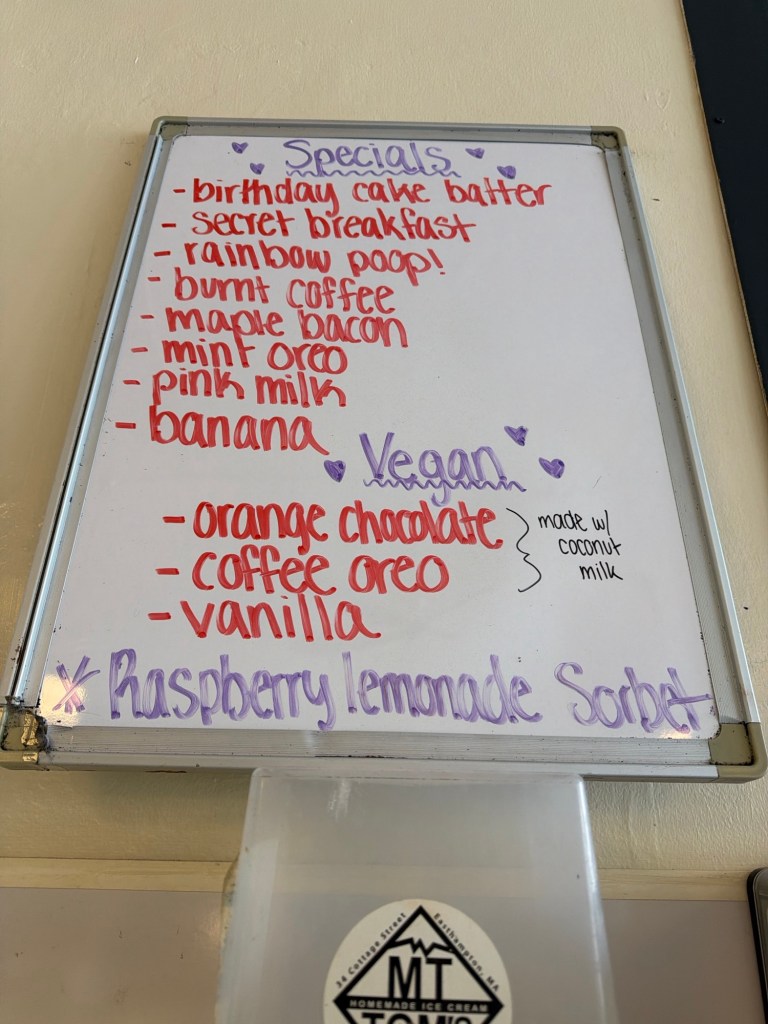 Specials
- birthday cake batter
- secret breakfast
- rainbow poop!
- burnt coffee
- maple bacon
- mint oreo
- pink milk
- banana
Vegan
- orange chocolate
- coffee oreo
- vanilla
made w/
coconut
milk
* Raspberry lemonade Sorbet
34 Cottage Street Easthampton, MA
MT
HOMEMADE ICE CREAM
TOM'S